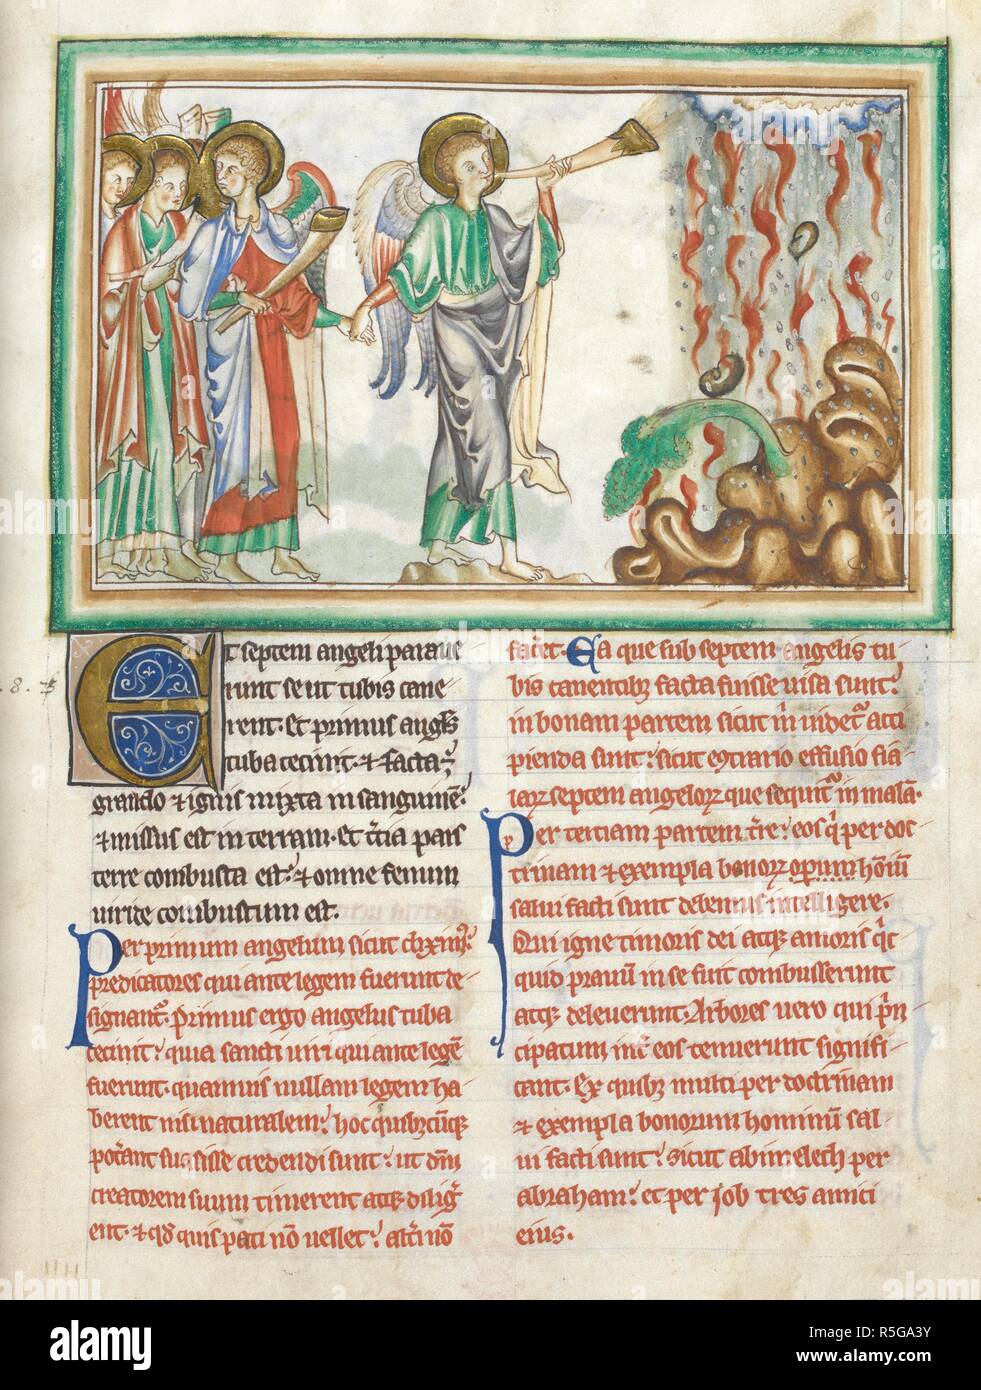 8. 
Et septem angeli paraue
runt se ut tubis cane
rent. Et primus angls
tuba cecinit. ⁊ facta ē
grando ⁊ ignis mixta in sanguine.
⁊ missus est in terram. et tcia pars
terre combusta est. ⁊ omne fenum
uiride combustum est.
Per primum angelum sicut diximꝰ.
predicatores qui ante legem fuerunt de
signantᷣ. Primus ergo angelus tuba
cecinit. quia sancti uiri qui ante legē
fuerunt. quamuis nullam legem ha
berent nisi naturalem. hoc quibꝫcūqꝫ
potant suasisse credendi sunt. ut dm̄
creatorem suum timerent atqꝫ diligr
ent. ⁊ qd quis pati nō uellet. altī nō
facet. Ea que sub septem angelis tu
bis canentibꝫ facta fuisse uisa sunt.
in bonam partem sicut m̄ uidetᷣ acci
pienda sunt. sicut econtrario effusio fia
laꝝ septem angeloꝝ que sequntᷣ in malā.
Per terciam partem tre. eos q̇ per doc
trinam ⁊ exempla bonoꝝ operum hoīū
salui facti sunt debemus intelligere.
Qui igne timoris dei atqꝫ amoris qc
quid prauū in se fuit combusserunt
atqꝫ deleuerunt. Arbores uero qui prin
cipatum int eos tenuerunt signifi
cant. Ex quibꝫ multi per doctrinam
⁊ exempla bonorum hominū sal
ui facti sunt. sicut abimelech per
abraham. et per iob tres amici
eius.
alamy
Image ID: R5GA3Y
www.alamy.com